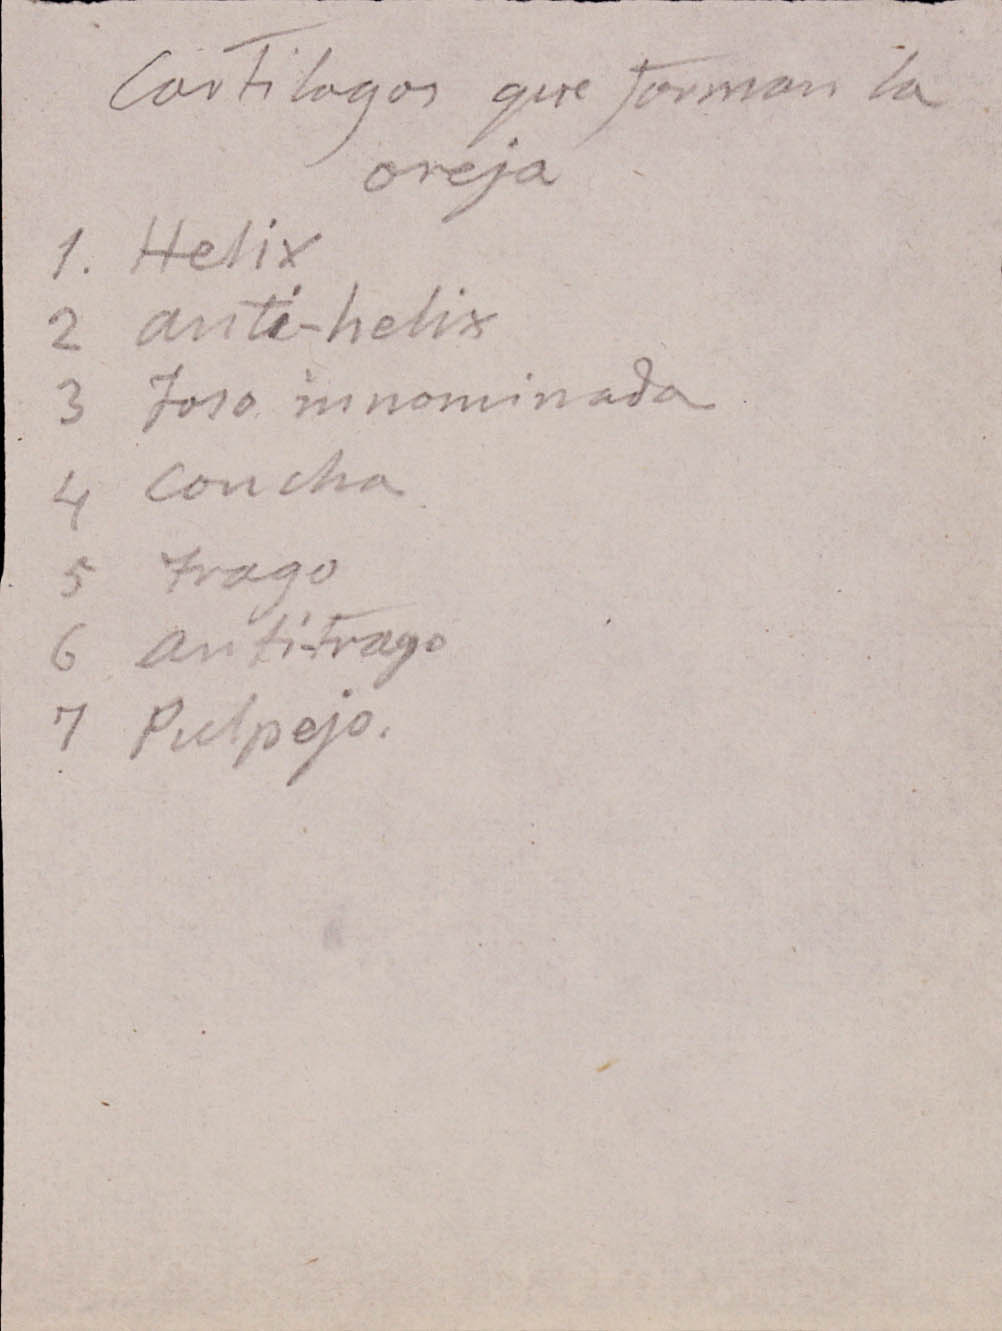 Cartilagos que forman la
oreja
1. Helix
2 anti-helix
3 Fosa innominada
4 Concha
5 trago
6 anti-trago
7 Pulpejo.